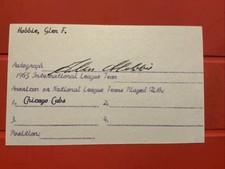 Hobbie, Glen F.
Autograph Glen Hobbie
1965 International League Team
American or National League Teams Played With:
1. Chicago Cubs 2.
3. 4.
Position: